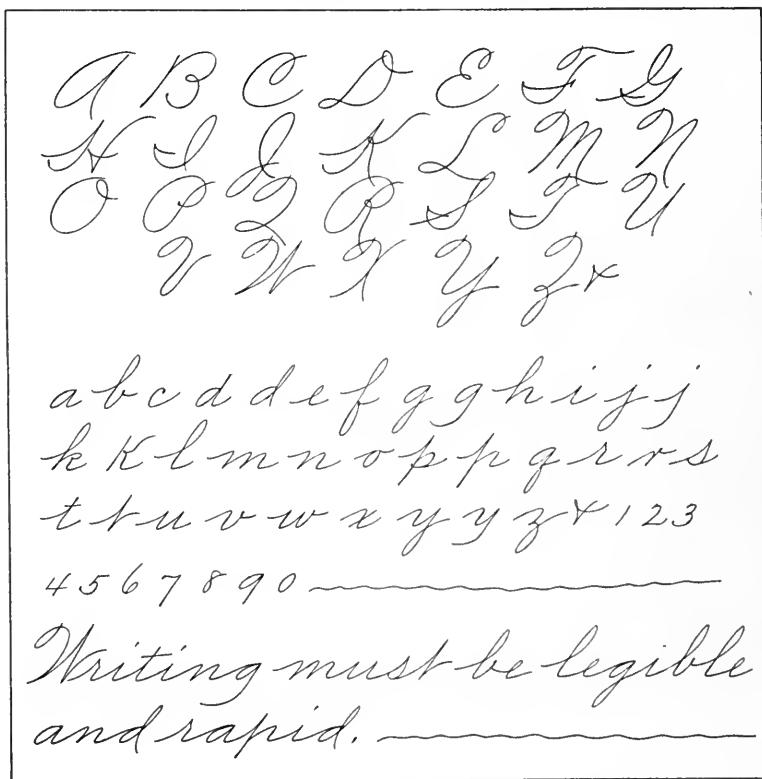 A B C D E F G
H I J K L M N
O P Q R S T U
V W X Y Z &
a b c d d e f g g h i j j
k k l m n o p p q r r s
t t u v w x y y z & 1 2 3
4 5 6 7 8 9 0
Writing must be legible
and rapid.